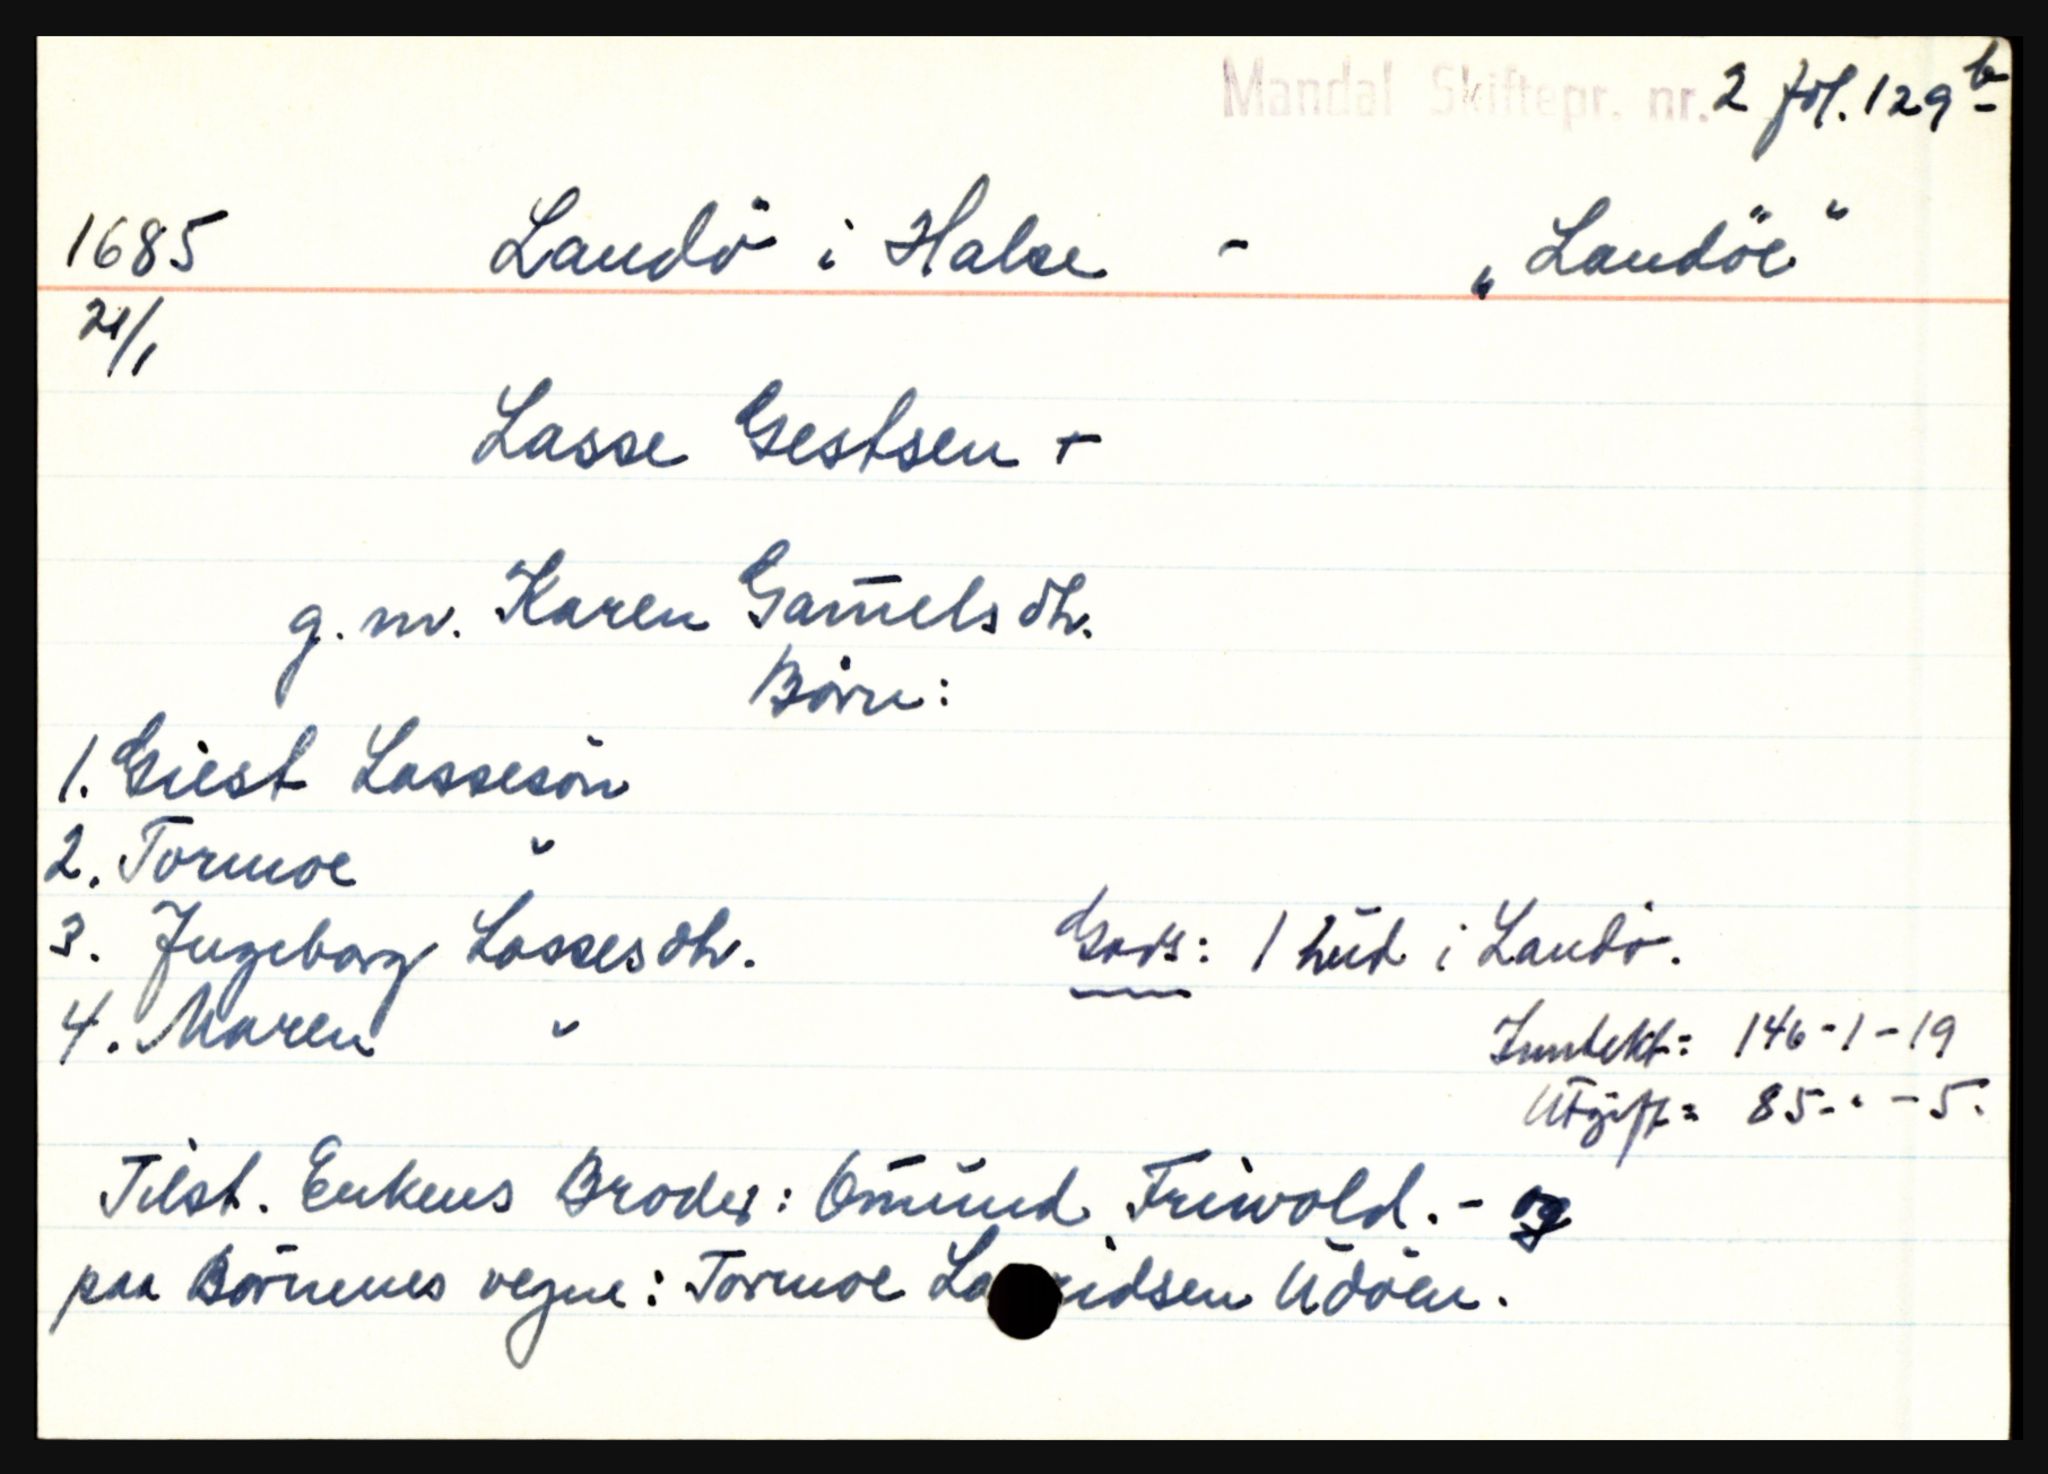 Mandal Skiftepr. nr. 2 fol. 129 b
1685 Landö i Halse - „Landöe“
21/1
Lasse Gestsen +
g. m. Karen Gam̄els dtr.
Börn:
1. Giest Lassesön
2. Tormoe "
3. Ingeborg Lassesdtr.
Gods: 1 hud i Landö.
4. Maren "
Inntekt: 146-1-19
Utgift= 85-"-5.
Tilst. Enkens Broder: Om̄und Friwold. - og
paa Börnenes vegne: Tormoe La ridsen Udöen.